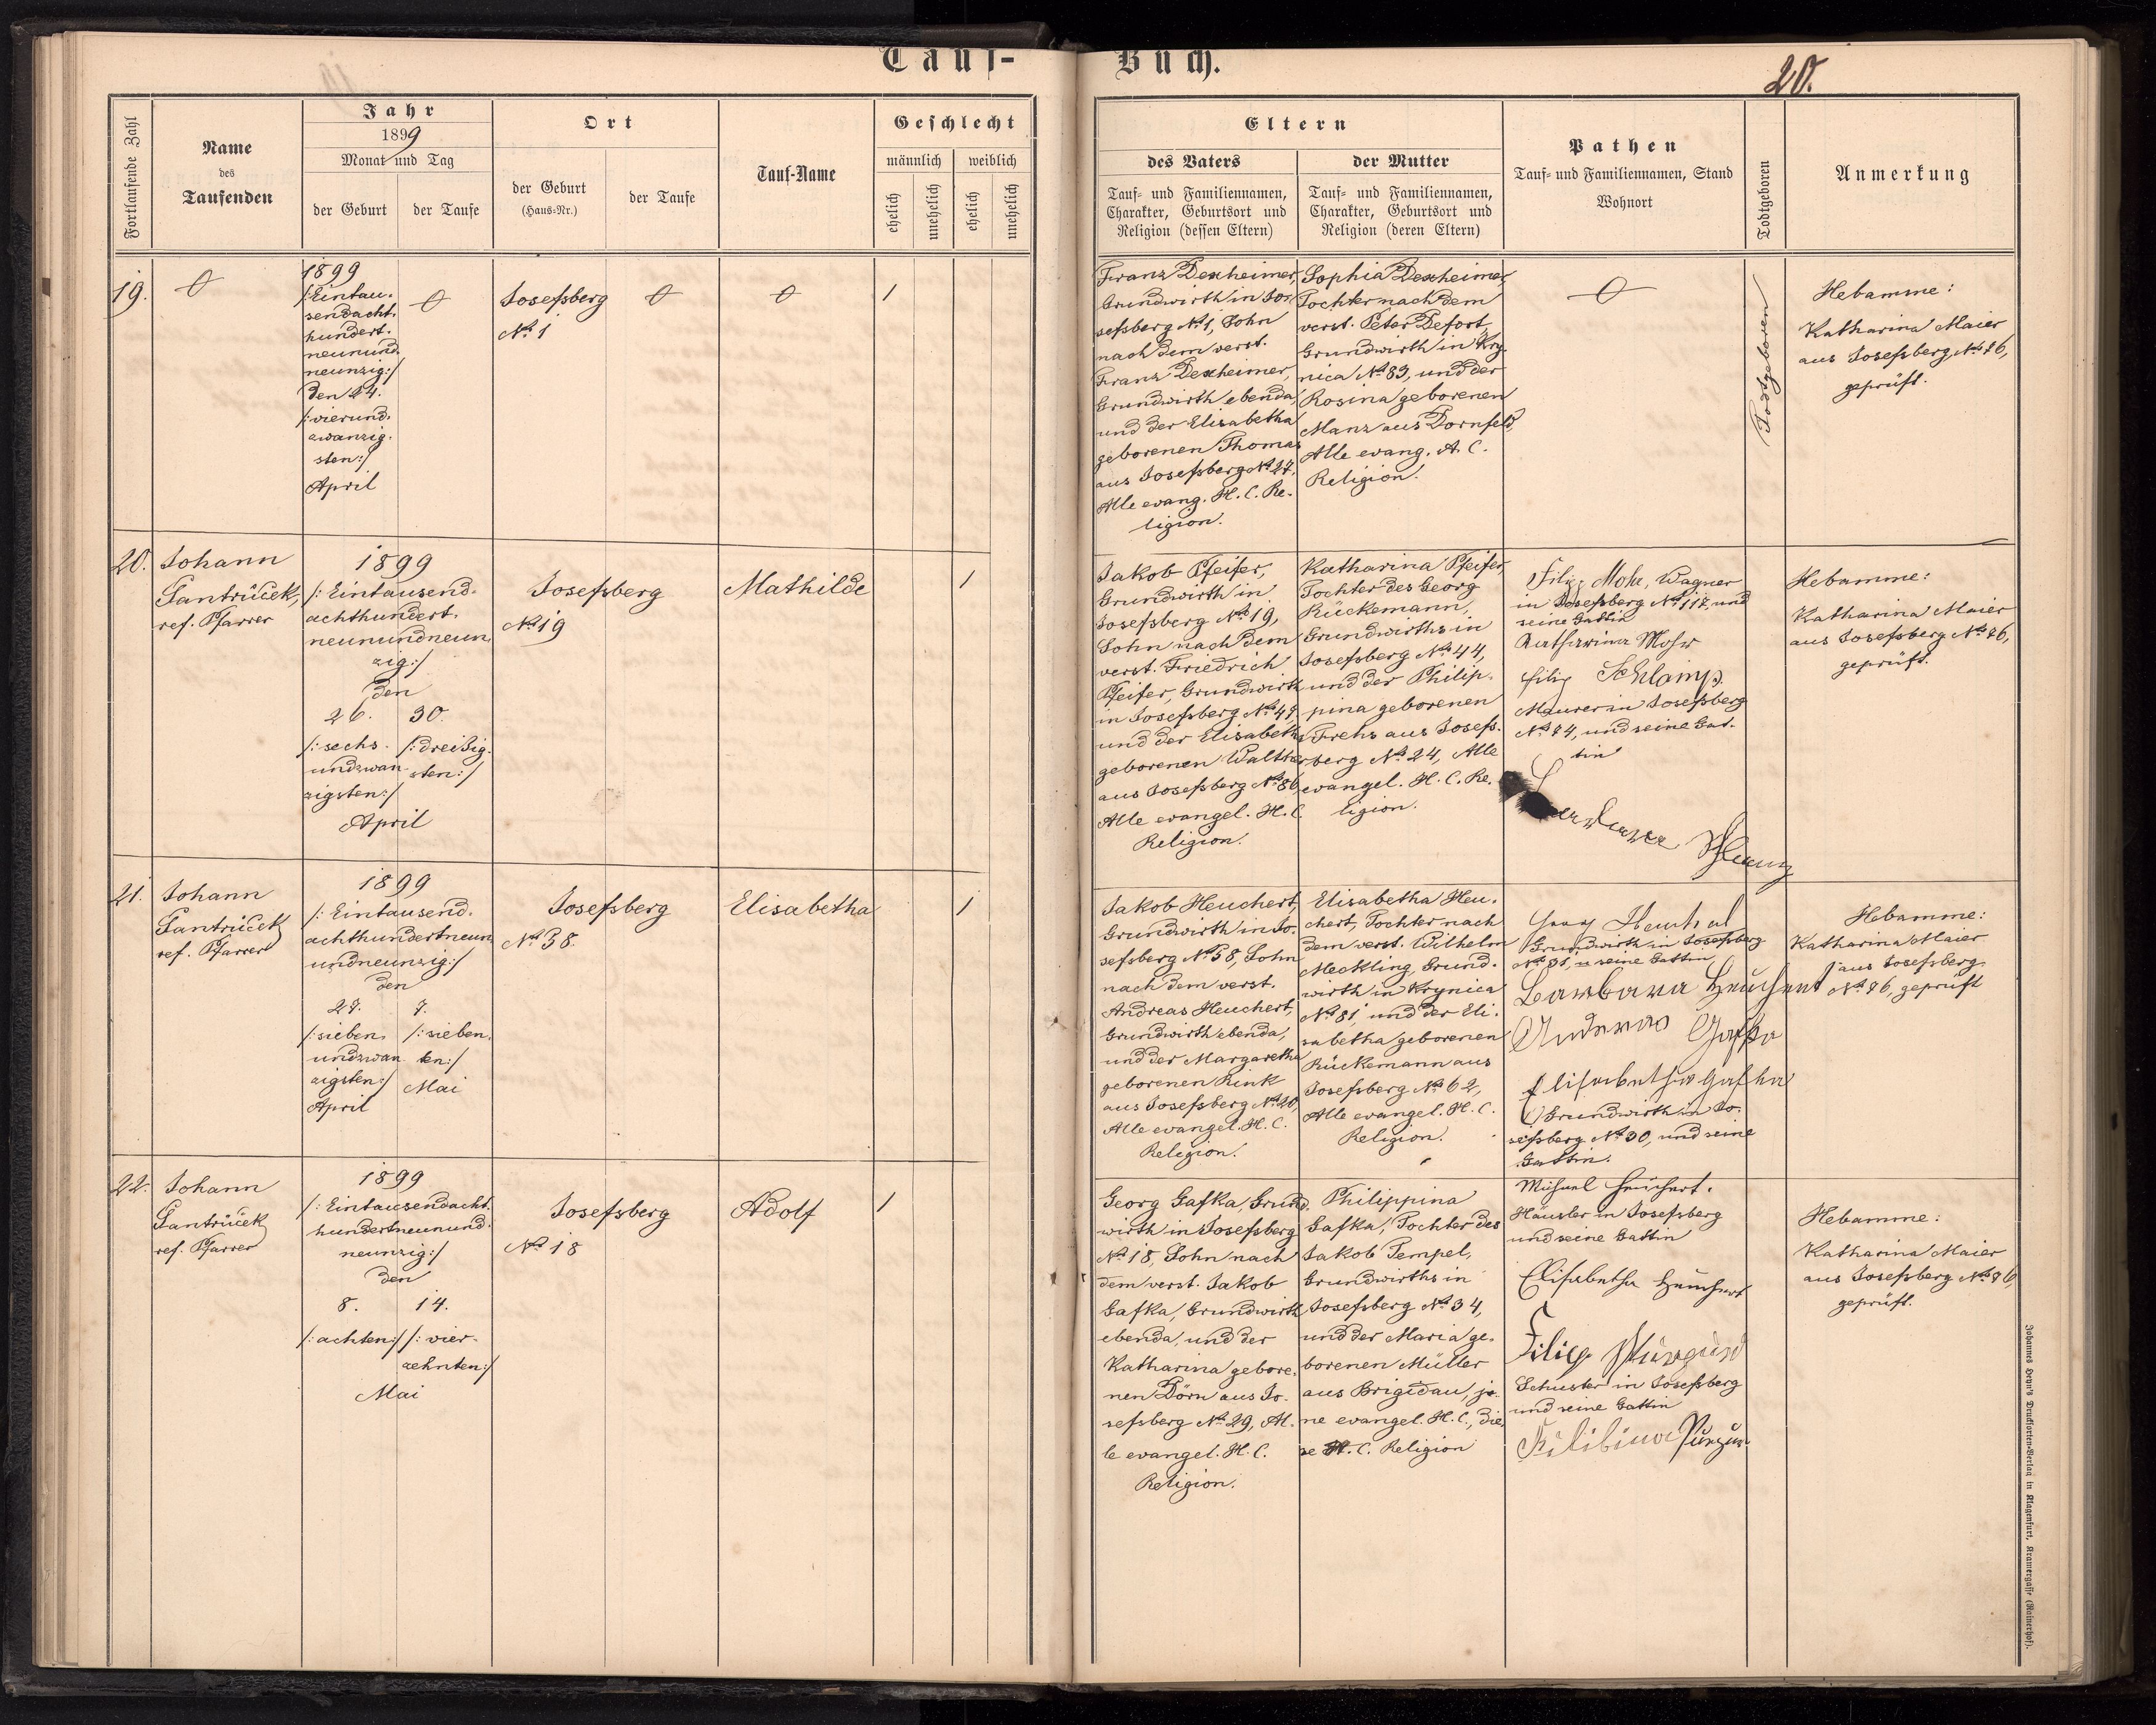 Tauf-
Buch.
20.
Fortlaufende Zahl
Name
des
Taufenden
Jahr
1899
Monat und Tag
der Geburt
der Taufe
Ort
der Geburt
(Haus-Nr.)
der Taufe
Tauf-Name
Geschlecht
männlich
weiblich
ehelich
unehelich
ehelich
unehelich
Eltern
des Vaters
Tauf- und Familiennamen,
Charakter, Geburtsort und
Religion (dessen Eltern)
der Mutter
Tauf- und Familiennamen,
Charakter, Geburtsort und
Religion (deren Eltern)
Pathen
Tauf- und Familiennamen, Stand
Wohnort
Todtgeboren
Anmerkung
19.
1899
/:Eintau-
sendacht-
hundert-
neunund-
neunzig:/
den 24.
/:vierund-
zwanzig-
sten:/
April
Josefsberg
No 1
1
Franz Dexheimer,
Grundwirth in Jo-
sefsberg No 1, Sohn
nach dem verst.
Franz Dexheimer,
Grundwirth ebenda,
und der Elisabetha
geborenen Thomas
aus Josefsberg No 27,
Alle evang. H. C. Re-
ligion.
Sophia Dexheimer,
Tochter nach dem
verst. Peter Defort,
Grundwirth in Kry-
nica No 83, und der
Rosina geborenen
Manz aus Dornfeld,
Alle evang. A. C.
Religion.
Todtgeboren
Hebamme:
Katharina Maier
aus Josefsberg No 86,
geprüft.
20.
Johann
Jantrůček,
ref. Pfarrer
1899
/:Eintausend-
achthundert-
neunundneun-
zig:/
den
26. 30.
/:sechs- /:dreißig-
undzwan- sten:/
zigsten:/
April
Josefsberg
No 19
Mathilde
1
Jakob Pfeifer,
Grundwirth in
Josefsberg No 19,
Sohn nach dem
verst. Friedrich
Pfeifer, Grundwirth
in Josefsberg No 49,
und der Elisabetha
geborenen Walther
aus Josefsberg No 86,
Alle evangel. H. C.
Religion.
Katharina Pfeifer,
Tochter des Georg
Rückemann,
Grundwirths in
Josefsberg No 44,
und der Philip-
pina geborenen
Frehs aus Josefs-
berg No 24, Alle
evangel. H. C. Re-
ligion.
Filip Mohr, Wagner
in Josefsberg No 117, und
seine Gattin
Katharina Mohr
Filip Schlamp
Maurer in Josefsberg
No 84, und seine Gat-
tin
Hebamme:
Katharina Maier
aus Josefsberg No 86,
geprüft.
21.
Johann
Jantrůček
ref. Pfarrer
1899
/:Eintausend-
achthundertneun-
undneunzig:/
den
27. 7.
/:sieben- /:sieben-
undzwan- ten:/
zigsten:/ Mai
April
Josefsberg
No 58.
Elisabetha
1
Jakob Heuchert,
Grundwirth in Jo-
sefsberg No 58, Sohn
nach dem verst.
Andreas Heuchert,
Grundwirth ebenda,
und der Margaretha
geborenen Rink
aus Josefsberg No 20,
Alle evangel. H. C.
Religion.
Elisabetha Heu-
chert, Tochter nach
dem verst. Wilhelm
Meckling, Grund-
wirth in Krynica
No 81, und der Eli-
sabetha geborenen
Rückemann aus
Josefsberg No 62,
Alle evangel. H. C.
Religion.
Grundwirth in Josefsberg
No 31, u seine Gattin
Barbara Heuchert
Andreas Gafka
Elisabetha Gafka
Grundwirth in Jo-
sefsberg No 30, und seine
Gattin.
Hebamme:
Katharina Maier
aus Josefsberg
No 86, geprüft
22.
Johann
Jantrůček
ref. Pfarrer
1899
/:Eintausendacht-
hundertneunund-
neunzig:/
den
8. 14.
/:achten:/ /:vier-
zehnten:/
Mai
Josefsberg
No 18
Adolf
1
Georg Gafka, Grund-
wirth in Josefsberg
No 18, Sohn nach
dem verst. Jakob
Gafka, Grundwirth
ebenda, und der
Katharina gebore-
nen Dörn aus Jo-
sefsberg No 29, Al-
le evangel. H. C.
Religion.
Philippina
Gafka, Tochter des
Jakob Tempel,
Grundwirths in
Josefsberg No 34,
und der Maria ge-
borenen Müller
aus Brigidau, je-
ne evangel. H. C., die-
se A. C. Religion
Michael Heuchert.
Häusler in Josefsberg
und seine Gattin
Elisabetha Heuchert
Filip
Schuster in Josefsberg
und seine Gattin
Filibina
Hebamme:
Katharina Maier
aus Josefsberg No 86,
geprüft.
Johannes Heyn's Drucksorten-Verlag in Klagenfurt, Kramergasse (Rainerhof).